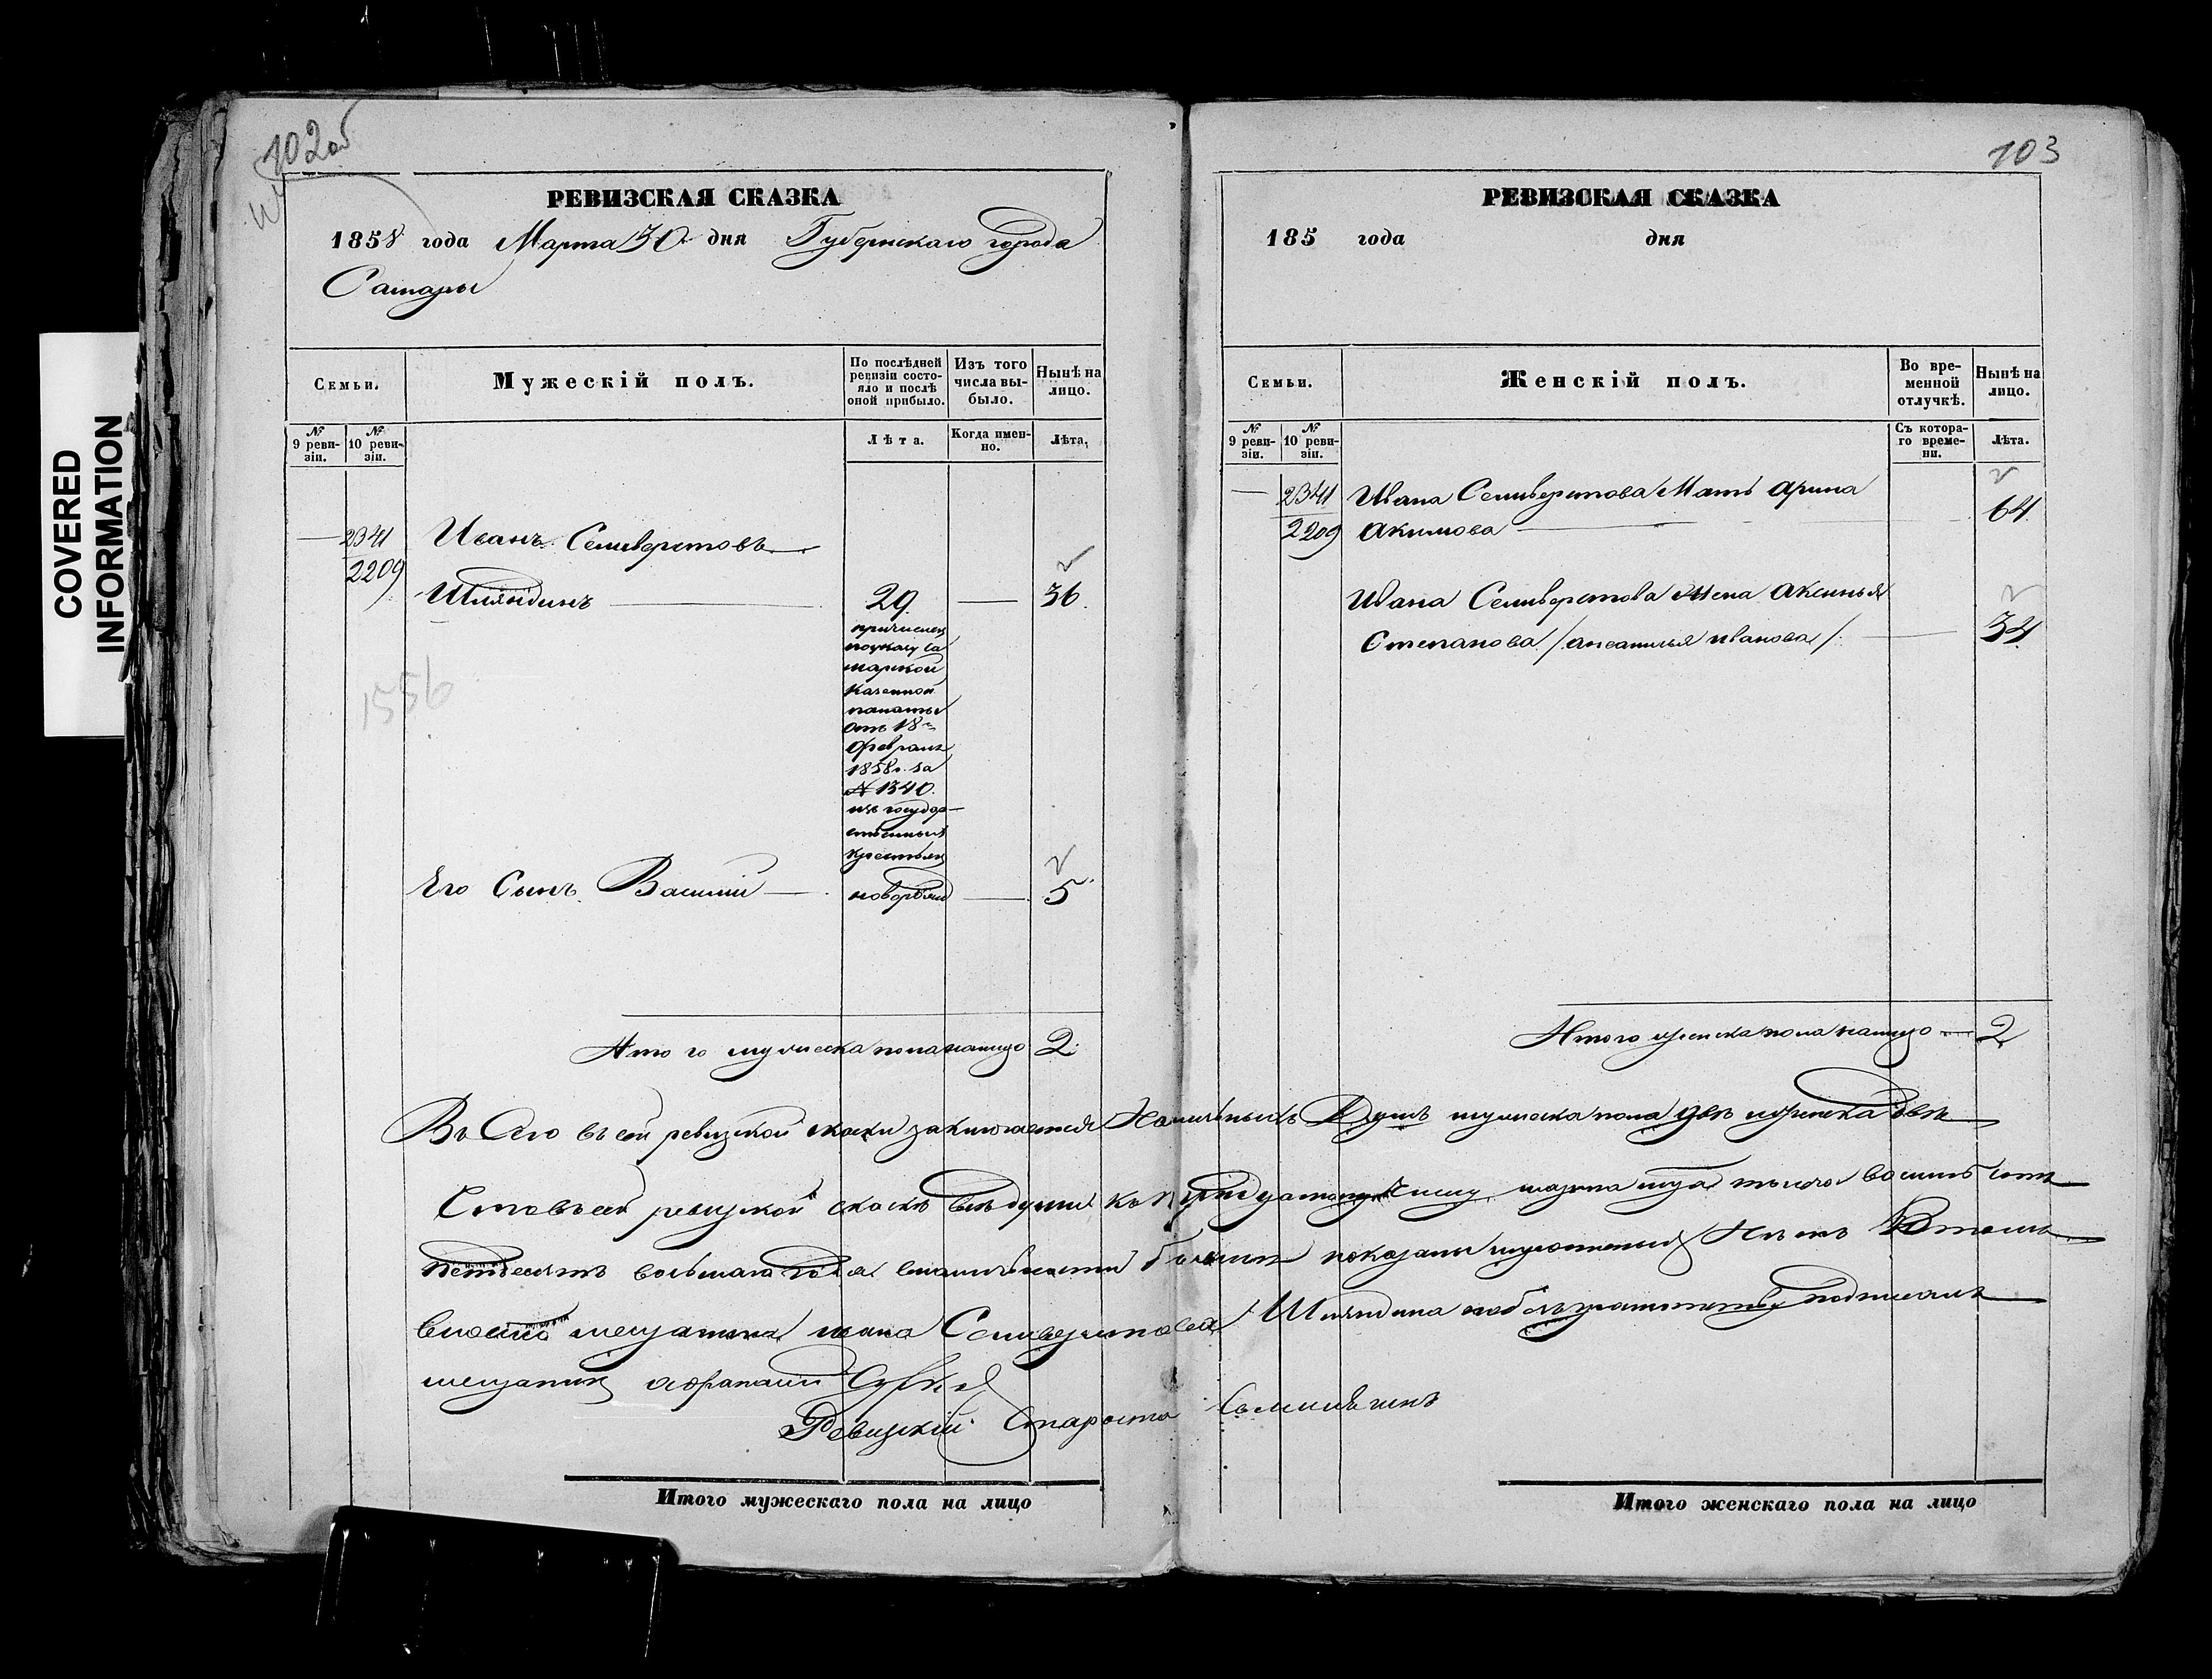 102об
РЕВИЗСКАЯ СКАЗКА
1858 года Марта 30 дня Губернскаго города
Самары
Семьи.
Мужескій полъ.
По послѣдней ревизіи состояло и послѣ оной прибыло.
Изъ того числа выбыло.
Нынѣ на лицо.
№ 9 ревизіи.
№ 10 ревизіи.
Лѣта.
Когда именно.
Лѣта.
2341
2209
Иванъ Селиверстовъ
Шляндинъ — 29 — 36
причислен
по указу Са
марской
казенной
палаты
отъ 18
февраля
1858 г. за
№ 1340
изъ государ
ственныхъ
крестьян
1556
Его Сынъ Василий — новорожд — 5
Итого мужеска пола налицо 2
103
РЕВИЗСКАЯ СКАЗКА
185 года дня
Семьи.
Женскій полъ.
Во временной отлучкѣ.
Нынѣ на лицо.
№ 9 ревизіи.
№ 10 ревизіи.
Съ котораго времени.
Лѣта.
2341
2209
Ивана Селиверстова Мать Арина
Акимова — 64
Ивана Селиверстова Жена Аксинья
Степанова / Ивановa / — 34
Итого женска пола налицо — 2
въ сей ревизской сказки заключается Наличныхъ Душъ мужеска пола две женска две
ревизской сказкѣ все души къ число марта тысяча восимь сотъ
восьмаго года показаны Нѣтъ Втомъ
вместо мещанина ивана Селиверстова Шляндина подписалъ
мещанин
Ревизкій Староста
Итого мужескаго пола на лицо
Итого женскаго пола на лицо
COVERED
INFORMATION